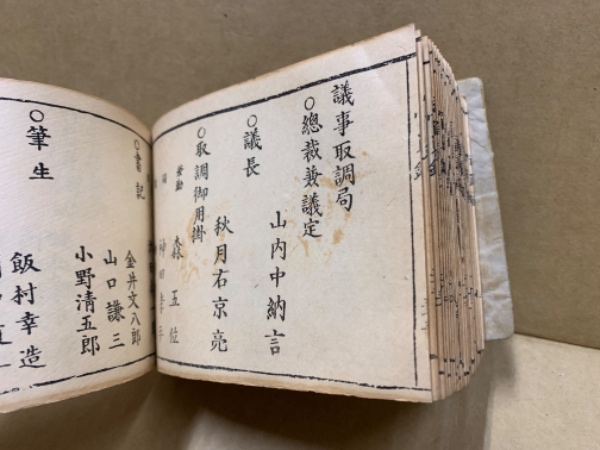 議事取調局
○總裁兼議定
山内中納言
○議長
秋月右京亮
○取調御用掛
森五位
神田孝平
○書記
金井文八郎
山口謙三
小野清五郎
○筆生
飯村幸造